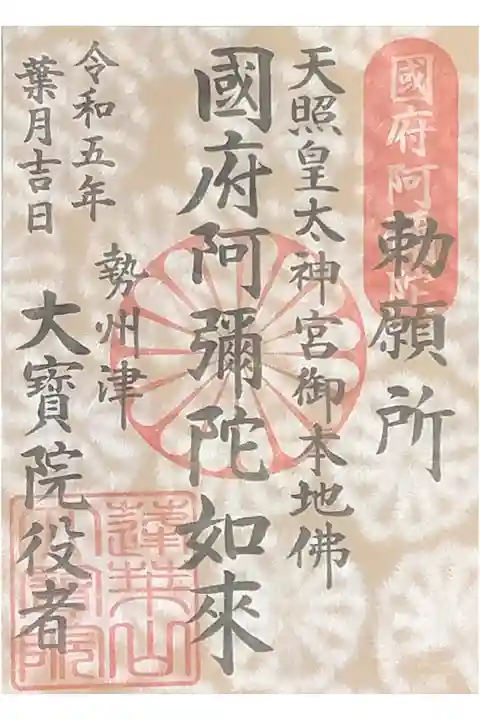 國府阿彌陀
勅願所
天照皇太神宮御本地佛
國府阿彌陀如來
勢州津
大寶院役者
令和五年
葉月吉日
蓮華山
大寶院